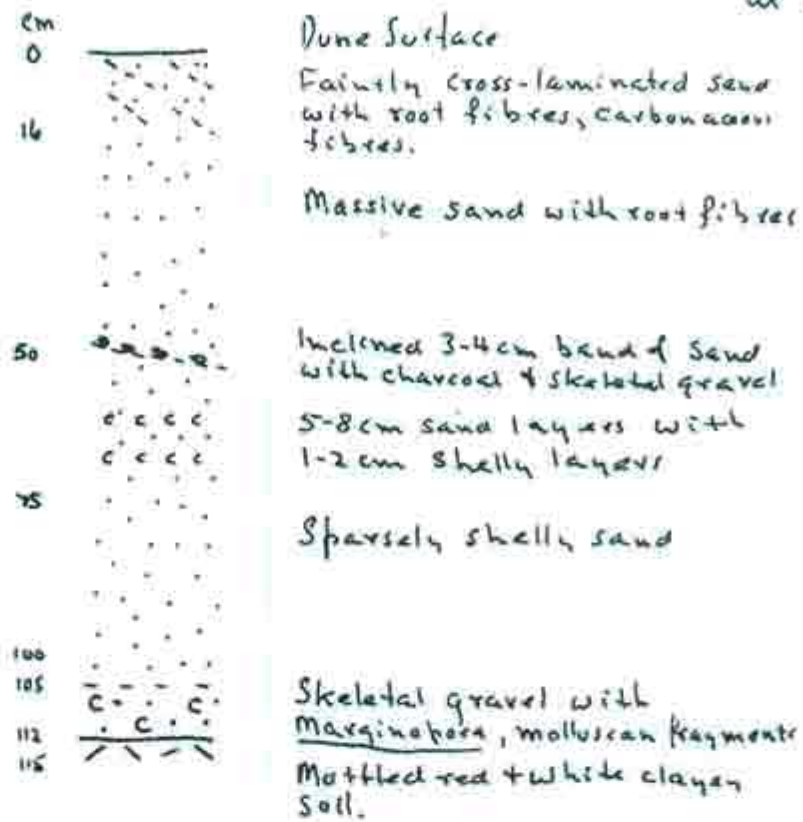 cm
0
Dune Surface
Faintly cross-laminated sand
with root fibres, carbonaceous
fibres.
16
Massive sand with root fibres
50
Inclined 3-4cm band of sand
with charcoal + skeletal gravel
5-8cm sand layers with
1-2cm shelly layers
75
Sparsely shelly sand
100
105
Skeletal gravel with
Marginopora, molluscan fragments
112
115
Mottled red + white clayey
soil.